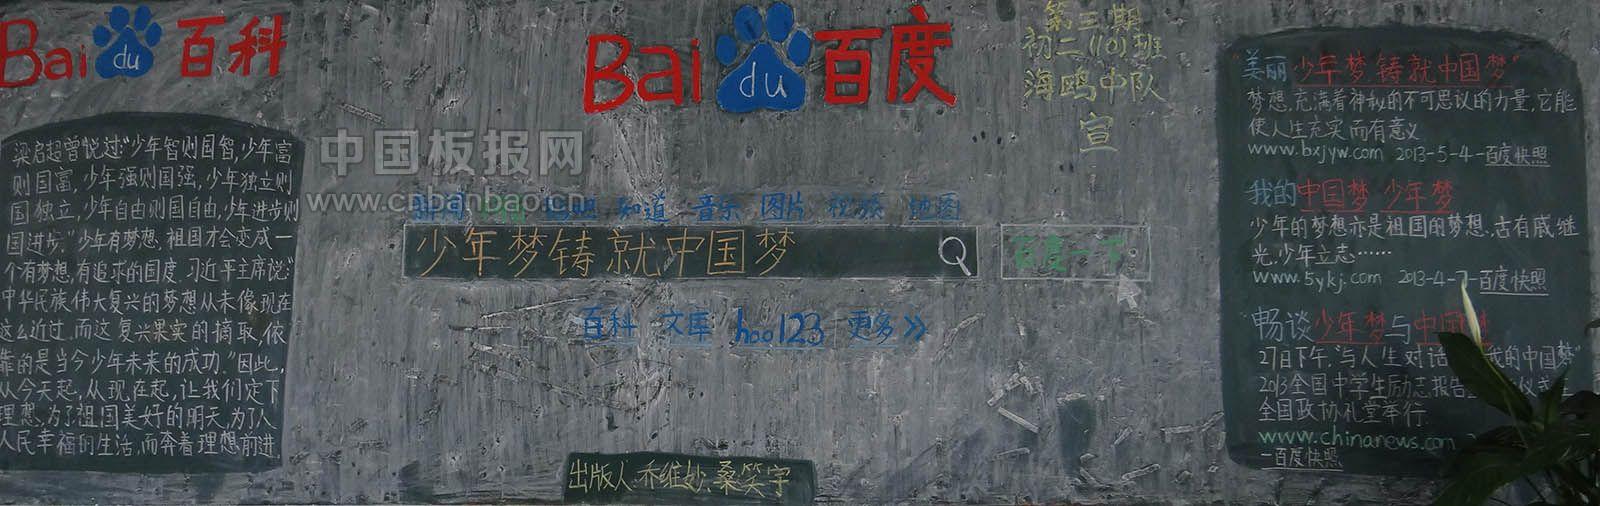 Bai du 百科
梁启超曾说过:“少年智则国智,少年富
则国富,少年强则国强,少年独立则
国独立,少年自由则国自由,少年进步则
国进步。”少年有梦想,祖国才会变成一
个有梦想,有追求的国度.习近平主席说:“
中华民族伟大复兴的梦想从未像现在
这么近过,而这复兴果实的摘取,依
靠的是当今少年未来的成功。”因此,
从今天起,从现在起,让我们定下
理想,为了祖国美好的明天,为了人
人民幸福的生活,而奔着理想前进.
中国板报网
www.cnbanbao.cn
Bai du 百度
第三期
初二(10)班
海鸥中队
宣
新闻 网页 贴吧 知道 音乐 图片 视频 地图
少年梦铸就中国梦
百度一下
百科 文库 hao123 更多>>
出版人:乔维妙、桑笑宇
“美丽少年梦铸就中国梦”
梦想,充满着神秘的不可思议的力量,它能
使人生充实而有意义
www.bxjyw.com 2013-5-4-百度快照
我的中国梦 少年梦
少年的梦想亦是祖国的梦想.古有戚继
光,少年立志……
www.5ykj.com 2013-4-7-百度快照
畅谈少年梦与中国梦
27日下午,“与人生对话 我的中国梦”
2013全国中学生励志报告 仪式
全国政协礼堂举行.
www.chinanews.com
-百度快照